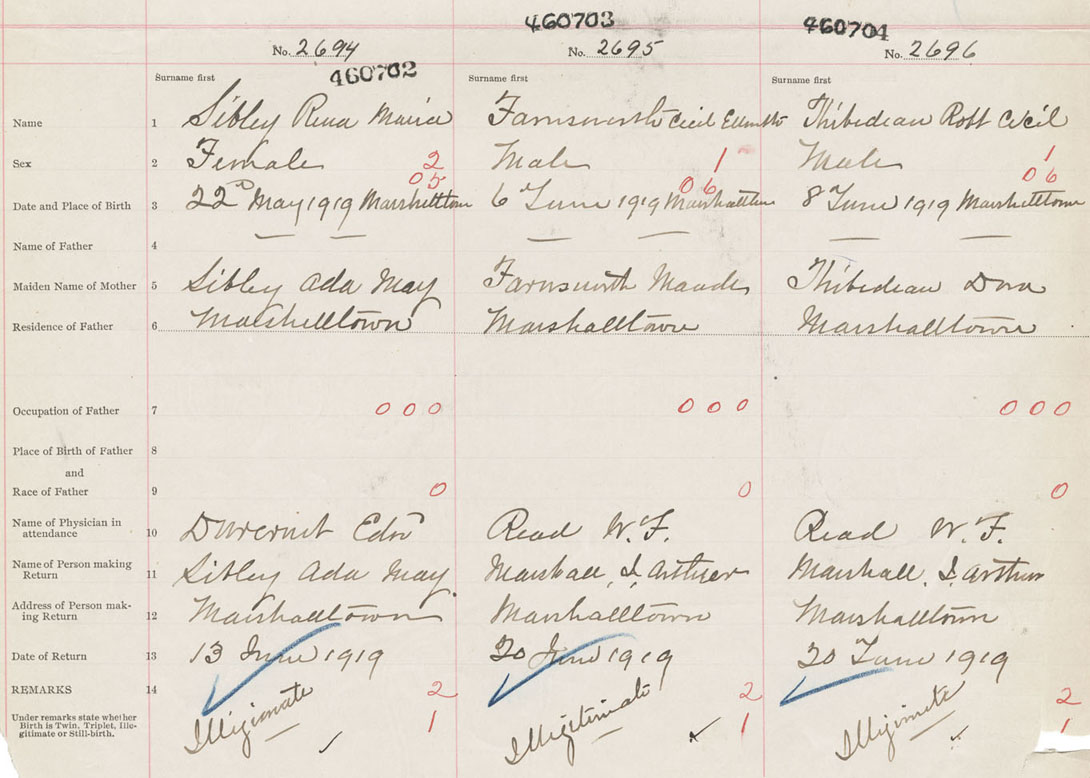 460703
460704
No. 2694
No. 2695
No. 2696
460702
Surname first
Surname first
Surname first
Name 1 Sibley Rena Maria Farnsworth Cecil Thibedeau Robt Cecil
Sex 2 Female 2 Male 1 Male 1
05 06 06
Date and Place of Birth 3 22nd May 1919 Marshalltown 6 June 1919 Marshalltown 8 June 1919 Marshalltown
Name of Father 4 — — — — — —
Maiden Name of Mother 5 Sibley Ada May Farnsworth Maude Thibedeau Dora
Residence of Father 6 Marshalltown Marshalltown Marshalltown
Occupation of Father 7 000 000 000
Place of Birth of Father 8
and
Race of Father 9 0 0 0
Name of Physician in
attendance 10 Read W. F. Read W. F.
Name of Person making
Return 11 Sibley Ada May Marshall, I. Arthur Marshall, I. Arthur
Address of Person mak-
ing Return 12 Marshalltown Marshalltown Marshalltown
Date of Return 13 13 June 1919 20 June 1919 20 June 1919
REMARKS 14 2 2 2
Under remarks state whether
Birth is Twin, Triplet, Ille-
gitimate or Still-birth.
Illigionate 1 Illigitimate 1 Illigimete 1